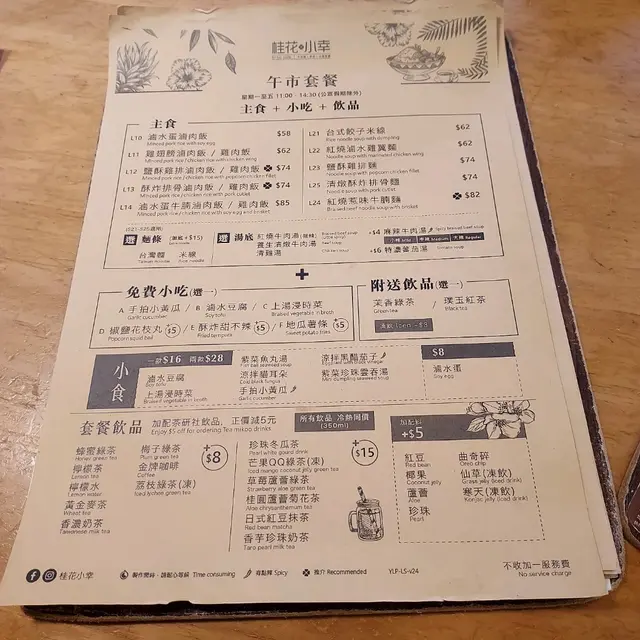 桂花小幸
午市套餐
星期一至五 11:00 - 14:30 (公眾假期除外)
主食 + 小吃 + 飲品
主食
L10 滷水蛋滷肉飯 $58
Minced pork rice with soy egg
L11 雞翅膀滷肉飯 / 雞肉飯 $62
Minced pork rice / chicken rice with chicken wing
L12 鹽酥雞滷肉飯 / 雞肉飯 $74
Minced pork rice / chicken rice with popcorn chicken fillet
L13 酥炸排骨滷肉飯 / 雞肉飯 $74
Minced pork rice / chicken rice with pork cutlet
L14 滷水蛋牛腩滷肉飯 / 雞肉飯 $85
L21 台式餃子米線 $62
Rice noodle soup with dumpling
L22 紅燒滷水雞翼麵 $62
Noodle soup with marinated chicken wing
L23 鹽酥雞麵 $74
Noodle soup with popcorn chicken fillet
L25 清燉酥炸排骨麵 $74
Noodle soup with pork cutlet
L24 紅燒惹味牛腩麵 $82
Braised beef noodle soup with brisket
選 麵條 (撈底 +$15)
台灣麵 米線
Taiwan noodle Rice noodle
選 湯底
紅燒牛肉湯
養生清燉牛肉湯
清雞湯
+$4 麻辣牛肉湯 Spicy braised beef soup
+$6 特濃蕃茄湯 Tomato soup
+
免費小吃(選一)
A 手拍小黃瓜 / B 滷水豆腐 / C 上湯浸時菜
Garlic cucumber Soy tofu Braised vegetable in broth
D 椒鹽花枝丸 +$5 / E 酥炸甜不辣 +$5 / F 地瓜薯條 +$5
Popcorn squid ball Fried tempura Sweet potato fries
附送飲品(選一)
茉香綠茶 / 璞玉紅茶
Green tea Black tea
凍飲 Iced +$3
小食
一款$16 兩款$28
滷水豆腐
Soy tofu
上湯浸時菜
Braised vegetable in broth
紫菜魚丸湯
涼拌貓耳朵
Cold black fungus
手拍小黃瓜
Garlic cucumber
涼拌黑醋茄子
紫菜珍珠雲吞湯
Mini dumpling seaweed soup
$8
滷水蛋
Soy egg
套餐飲品 加配茶研社飲品，正價減5元
Enjoy $5 off for ordering Tea mi sop drinks
所有飲品 冷熱同價
(350ml)
蜂蜜綠茶
Honey green tea
檸檬茶
Lemon tea
檸檬水
Lemon water
黃金麥茶
Wheat tea
香濃奶茶
Taiwanese milk tea
梅子綠茶
Plum green tea
金牌咖啡
Coffee
荔枝綠茶(凍)
Iced lychee green tea
+$8
珍珠冬瓜茶
Pearl white gourd drink
芒果QQ綠茶(凍)
Iced mango coconut jelly green tea
草莓蘆薈綠茶
Strawberry aloe green tea
桂圓蘆薈菊花茶
Aloe chrysanthemum tea
日式紅豆抹茶
Red bean matcha
香芋珍珠奶茶
Taro pearl milk tea
+$15
加配料
+$5
紅豆
Red bean
椰果
Coconut jelly
蘆薈
Aloe
珍珠
Pearl
曲奇碎
Oreo chip
仙草(凍飲)
Grass jelly (iced drink)
寒天(凍飲)
Konjac jelly (iced drink)
桂花小幸
製作需時，請耐心等候 Time consuming
有點辣 Spicy
推介 Recommended
YLP-LS-v24
不收加一服務費
No service charge